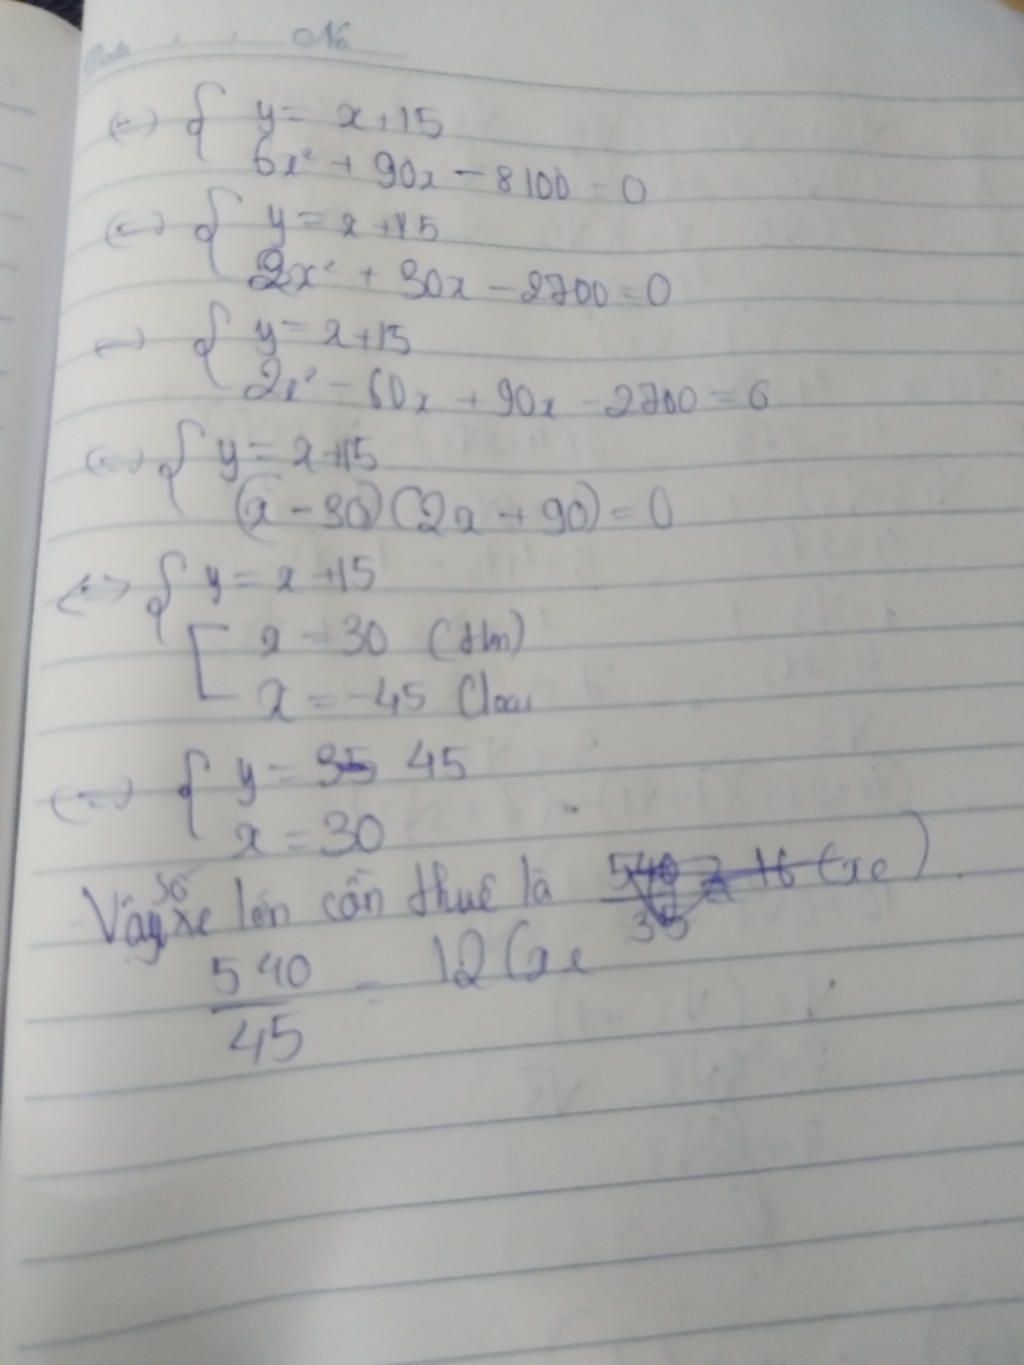 Date No
<=> { y = x+15
6x² + 90x - 8100 = 0
<=> { y = x+15
2x² + 30x - 2700 = 0
<=> { y = x+15
2x² - 60x + 90x - 2700 = 0
<=> { y = x+15
(x - 30)(2x + 90) = 0
<=> { y = x+15
[ x = 30 (tm)
x = -45 (loại
<=> { y = 45
x = 30
Vậy số xe lớn cần thuê là
540/45 = 12 (xe